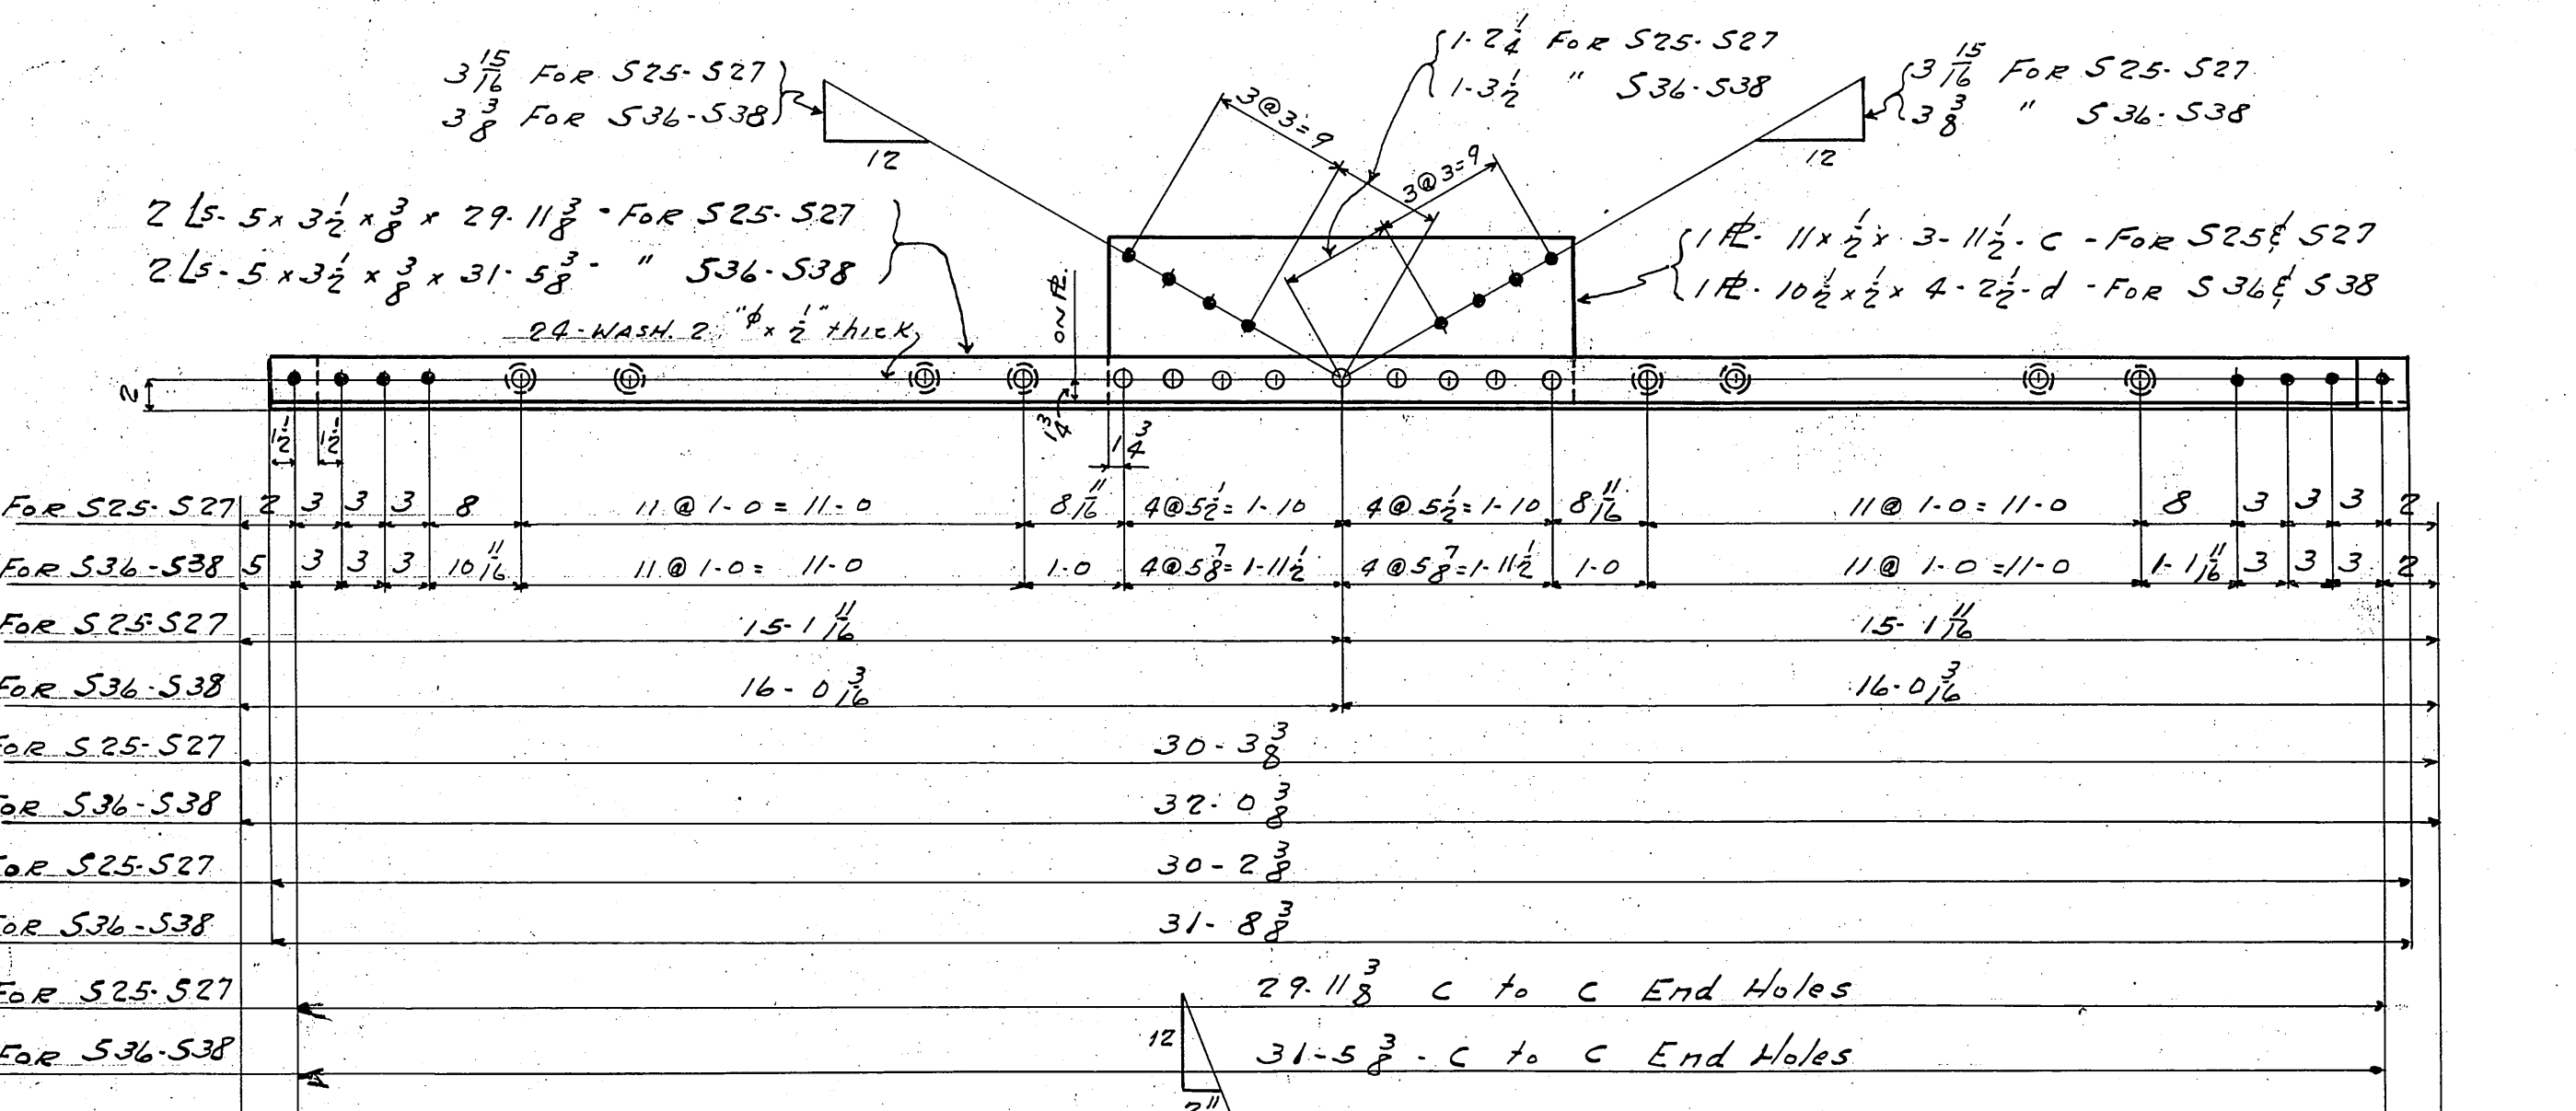 3 15/16 FOR S25-S27
3 3/8 FOR S36-S38
12
1-2 1/4 FOR S25-S27
1-3 1/2 " S36-S38
3 15/16 FOR S25-S27
3 3/8 " S36-S38
12
3@3=9
3@3=9
2 Ls- 5 x 3 1/2 x 3/8 x 29-11 3/8 - FOR S25-S27
2 Ls- 5 x 3 1/2 x 3/8 x 31-5 3/8 - " S36-S38
1 PL- 11 x 1/2 x 3-11 1/2 - C - FOR S25 & S27
1 PL- 10 1/2 x 1/2 x 4-2 1/2 - d - FOR S36 & S38
24-WASH. 2"φ x 1/2" thick
ON PL.
2
1 3/4
1 1/2 1 1/2 1 3/4
FOR S25-S27 2 3 3 3 8 11 @ 1-0 = 11-0 8 11/16 4@5 1/2=1-10 4@5 1/2=1-10 8 11/16 11 @ 1-0 = 11-0 8 3 3 3 2
FOR S36-S38 5 3 3 3 10 11/16 11 @ 1-0 = 11-0 1-0 4@5 7/8=1-11 1/2 4@5 7/8=1-11 1/2 1-0 11 @ 1-0 = 11-0 1-1 11/16 3 3 3 2
FOR S25-S27 15-1 11/16 15-1 11/16
FOR S36-S38 16-0 3/16 16-0 3/16
FOR S25-S27 30-3 3/8
FOR S36-S38 32-0 3/8
FOR S25-S27 30-2 3/8
FOR S36-S38 31-8 3/8
FOR S25-S27 29-11 3/8 C to C End Holes
FOR S36-S38 31-5 3/8 - C to C End Holes
12
2"